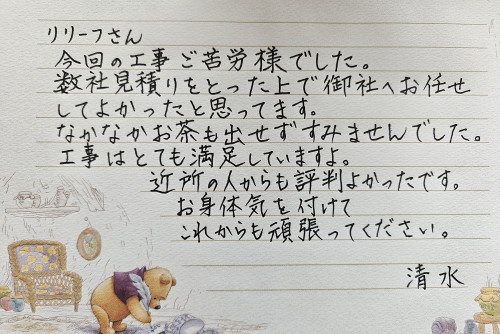 リリーフさん
今回の工事ご苦労様でした。
数社見積りをとった上で御社へお任せ
してよかったと思ってます。
なかなかお茶も出せずすみませんでした。
工事はとても満足していますよ。
近所の人からも評判よかったです。
お身体気を付けて
これからも頑張ってください。
清水